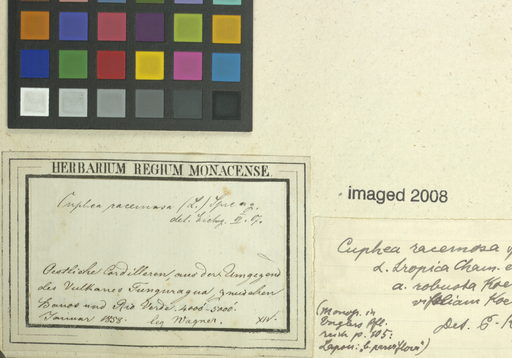 HERBARIUM REGIUM MONACENSE.
Cuphea racemosa (L.) Spreng.
det.
Oestliche Cordilleren, aus der Umgegend
des Vulkanes Tunguragua, zwischen
und Rio Verde. 4000'-5000'.
Januar 1858. leg. Wagner. XIV.
imaged 2008
Cuphea racemosa
L. tropica Cham.
a. robusta Koe
Koe
(Monogr. in
Englers
p. 105.
Det.